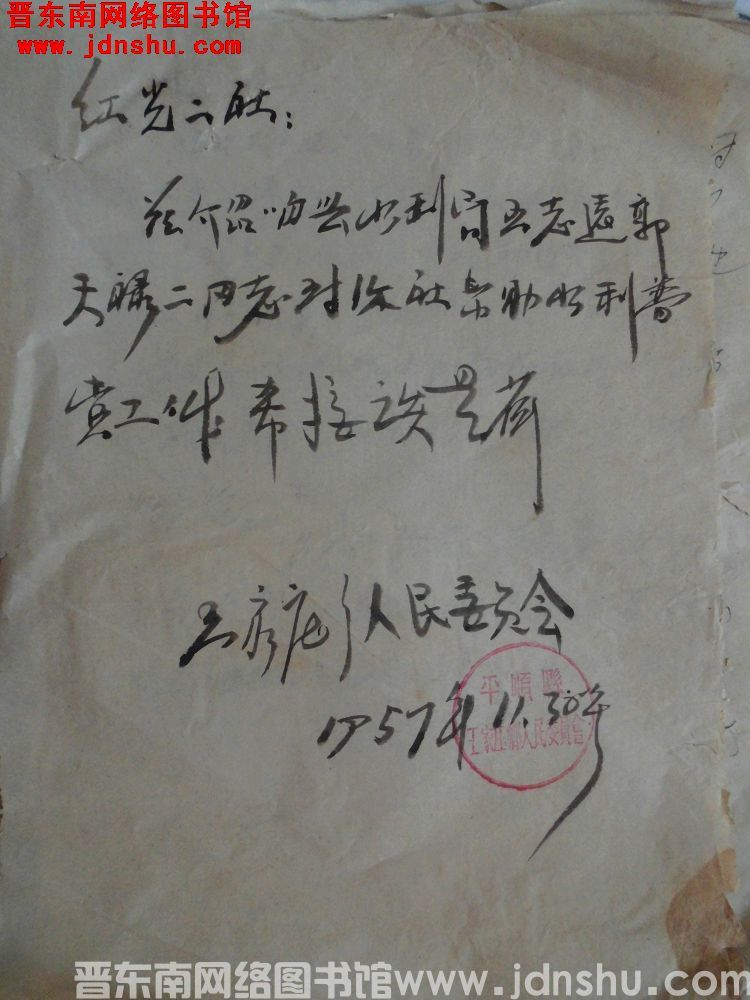 晋东南网络图书馆
www.jdnshu.com
红光二社:
兹介绍 水利局王志远郭
天禄二同志到你社帮助水利普
查工作希接谈是荷
王家庄乡人民委员会
1957年11.30号
平順縣
王家庄鄉人民委員會
晋东南网络图书馆www.jdnshu.com